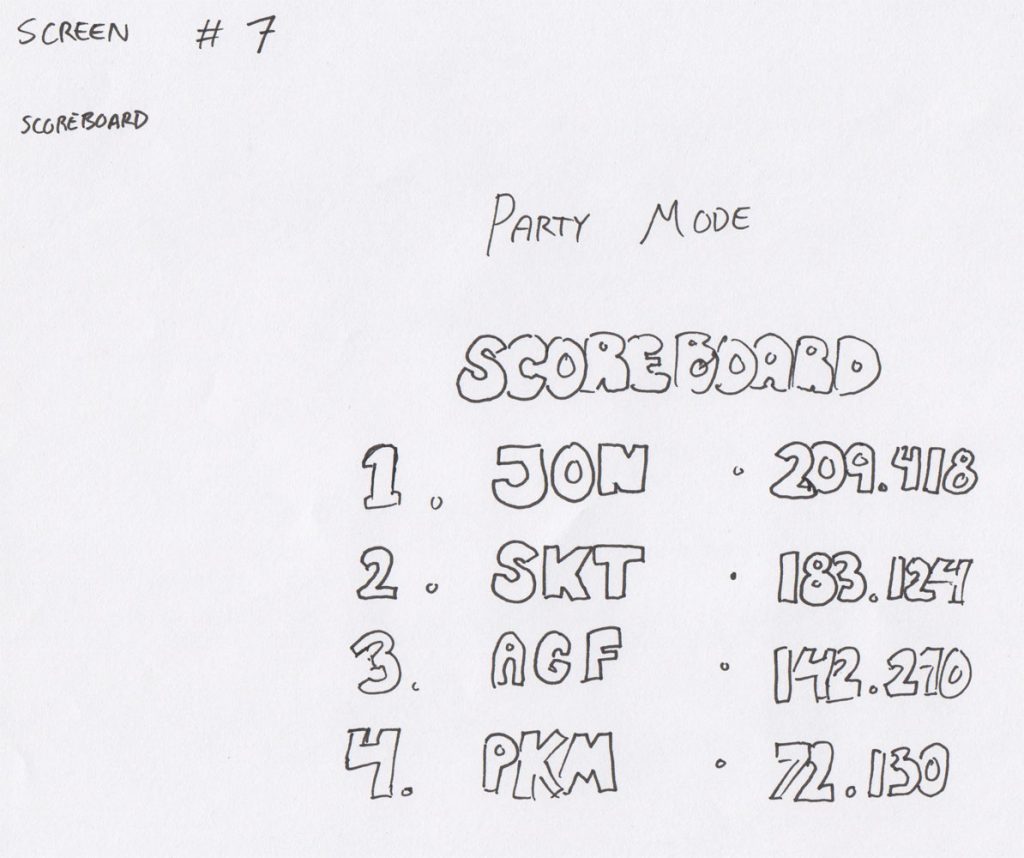 SCREEN # 7
SCOREBOARD
PARTY MODE
SCOREBOARD
1. JON . 209.418
2. SKT . 183.124
3. AGF . 142.270
4. PKM . 72.130